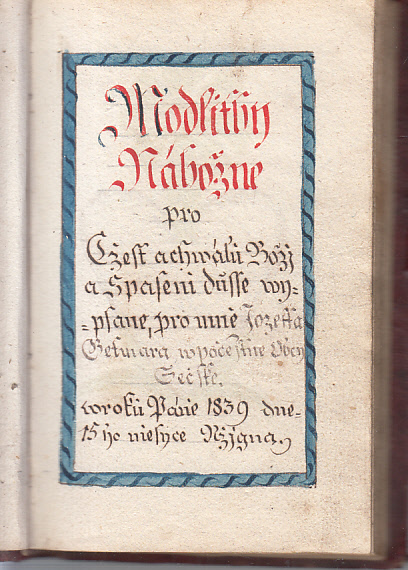 Modlitby
Nábožne
pro
Cžest a chwálu Božj
a Spaseni dusse wy-
-psane, pro mně Jozeffa
wpočestne Obcy
Sečske.
wroků Páně 1839 dne-
15 ho měsyce Ržigna.